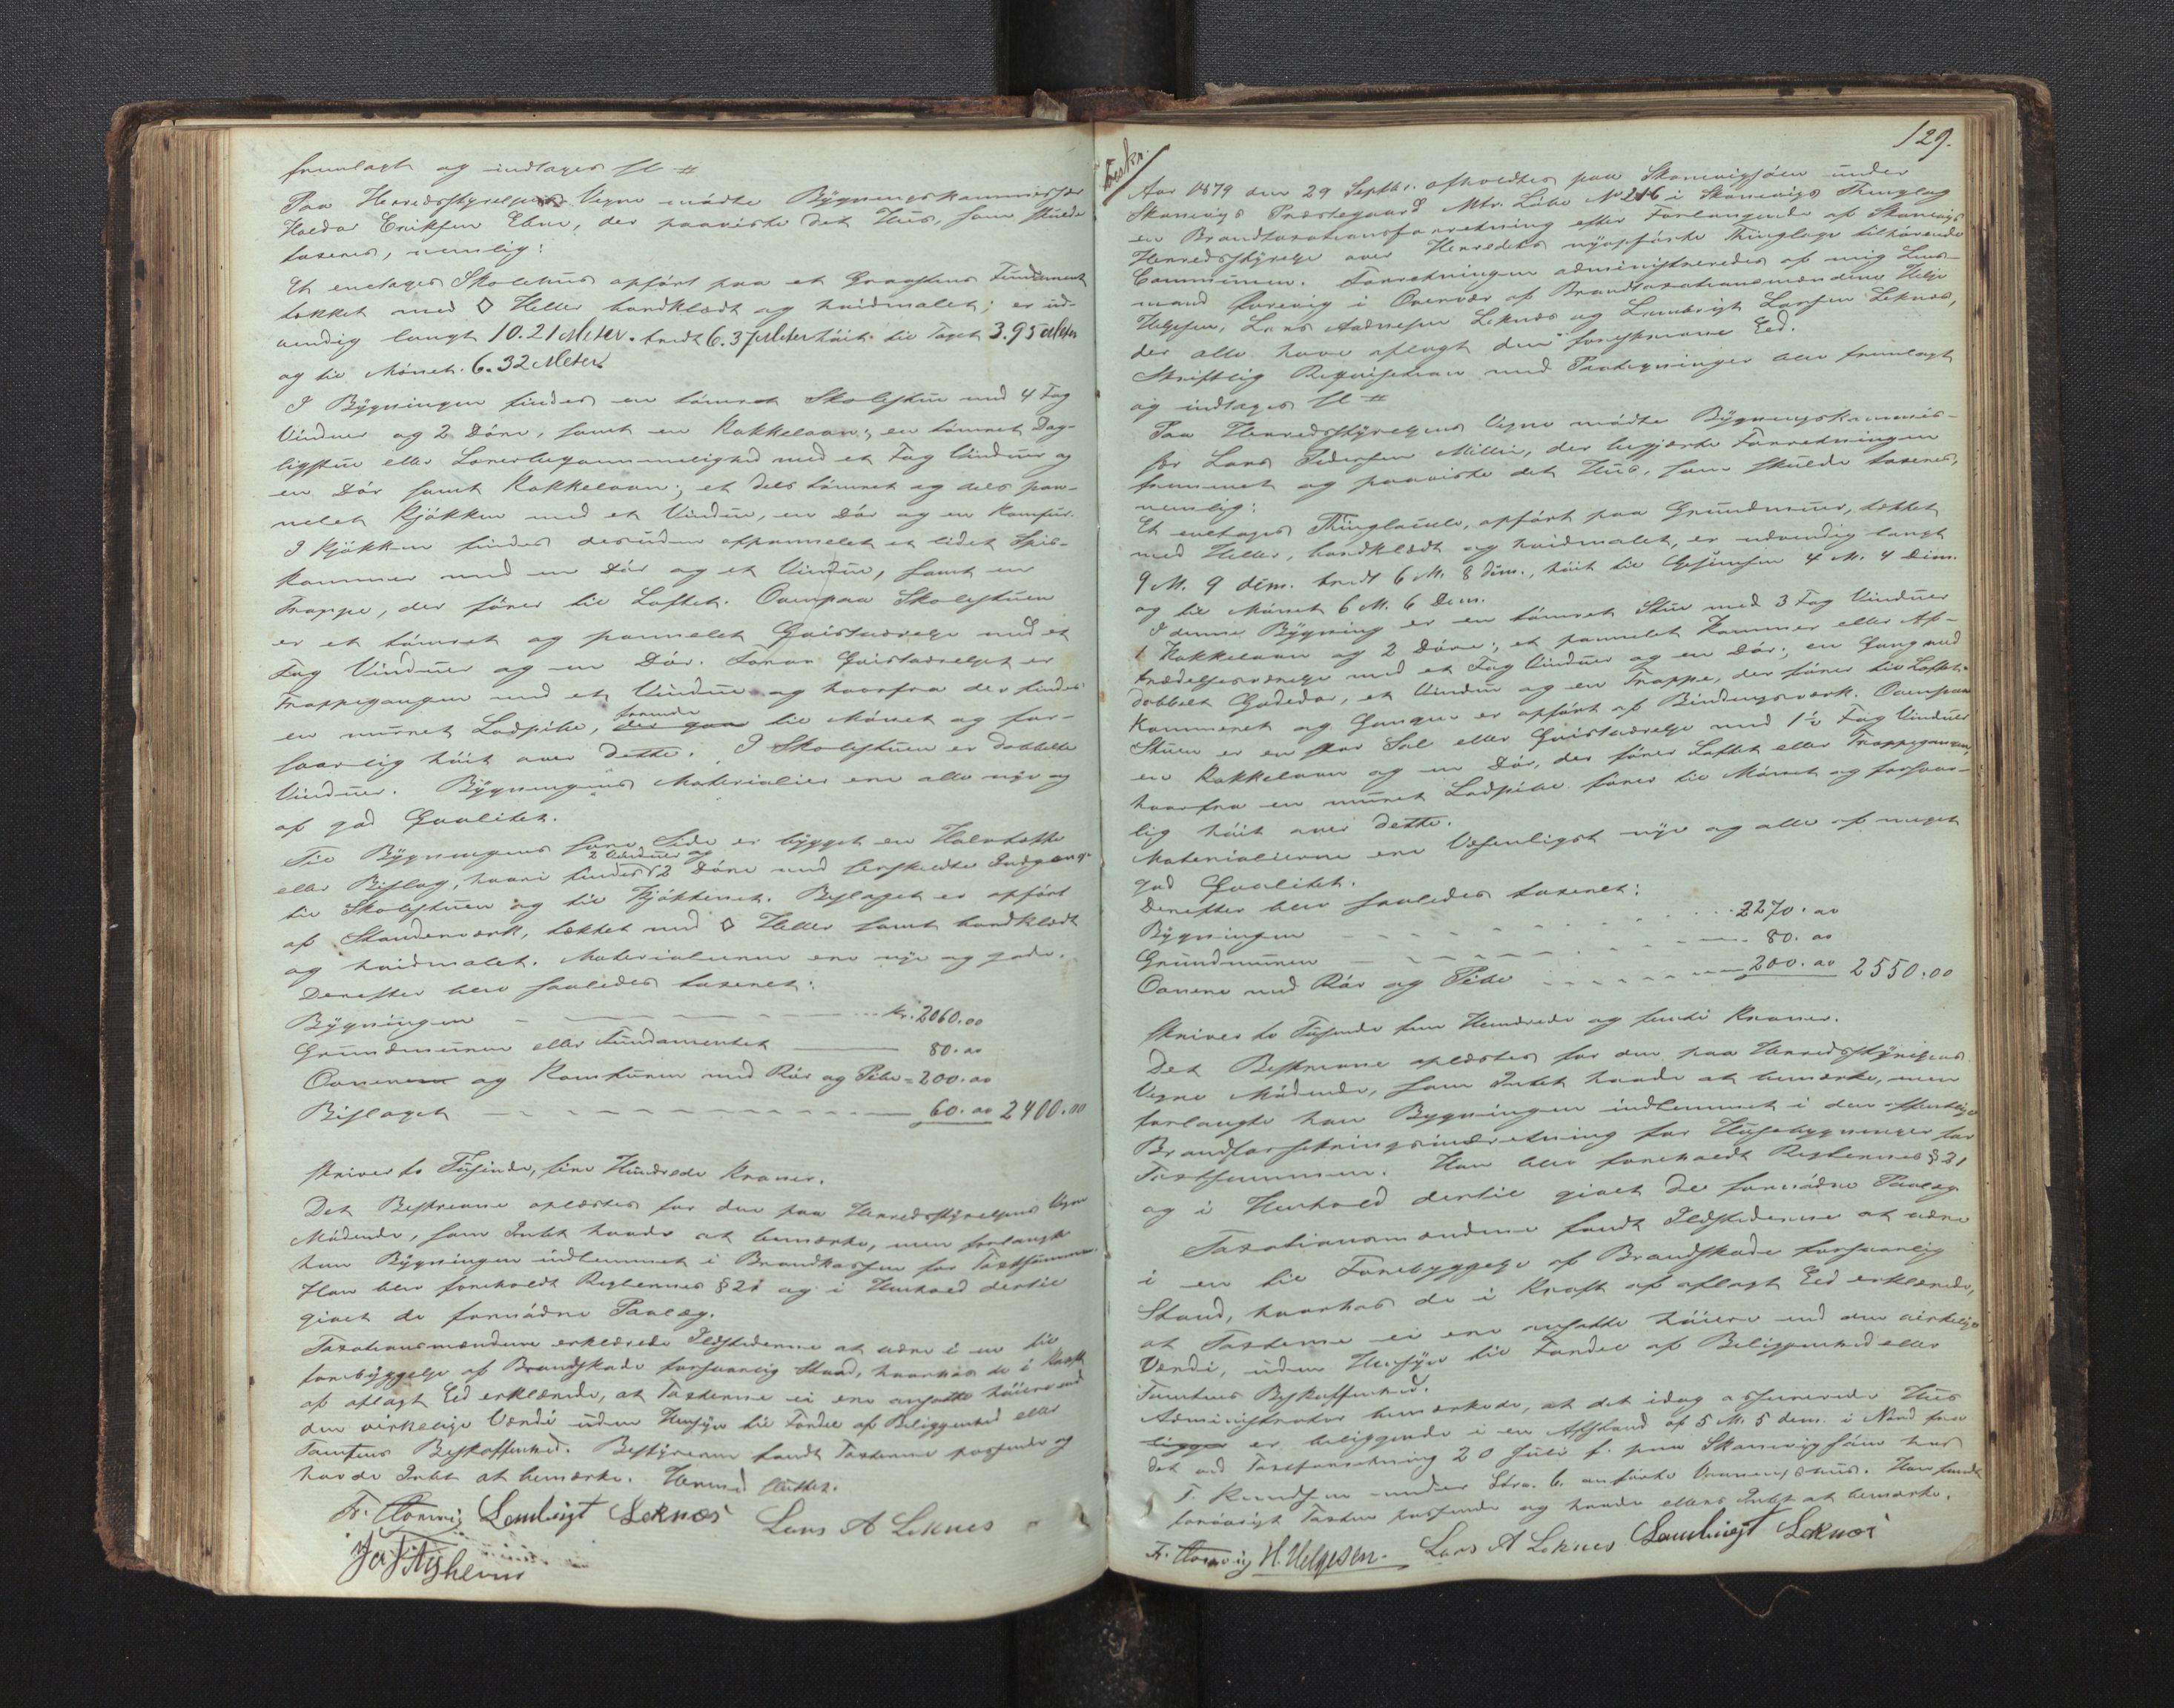 fremlagt og indtages sl #
Paa Herredsstyrelsens Vegne mødte Bygningskommissær
Haldor Eriksen Ebne, der paaviste det Huus, som skulde
taxeres, nemlig:
Et enetages Skolehus opført paa et Graastens Fundament
tækket med ◊ Heller bordklædt og hvidmalet; er ud-
vendig langt 10.21 Meter. bredt 6.37 Meter høit til Taget 3.95 Meter
og til Mønet. 6.32 Meter
I Bygningen findes en tømret Skolestue med 4 Fag
Vinduer og 2 Døre, samt en Kakkelovn; en tømret Dag-
ligstue eller Lærerbeqvemmelighed med et Fag Vinduer og
en Dør samt Kakkelovn; et dels tømret og dels pan-
nelet Kjøkken med et Vindue, en Dør og en Komfur.
I Kjøkken findes desuden afpannelet et lidet Spis-
kammer med en Dør og et Vindue, samt en
Trappe, der fører til Loftet. Ovenpaa Skolestuen
er et tømret og pannelet Qvistværelse med et
Fag Vinduer og en Dør. Foran Qvistværelset er
Trappegangen med et Vindue og hvorfra der findes
en muret Ladpibe, der gaar førende til Mønet og for-
svarlig høit over dette. I Skolestuen er dobbelte
Vinduer. Bygningens Materialier ere alle nye og
af god Qvalitet.
Til Bygningens søre Side er bygget en Halvtækte
eller Bislag, hvori findes 2 Vinduer og 2 Døre med særskildte Indgange
til Skolestuen og til Kjøkkenet. Bislaget er opført
af Standerværk, tækket med ◊ Heller samt bordklædt
og hvidmalet. Materialierne ere nye og gode.
Derefter blev saaledes taxeret:
Bygningen - - - - Kr. 2060.00
Grundmuren eller Fundamentet — 80.00
Ovnene og Komfuren med Rør og Pibe = 200.00
Bislaget - - - - 60.00 2400.00
skriver to Tusinde, fire Hundrede Kroner.
Det Beskrevne oplæstes for den paa Herredsstyrelsens Vegne
Mødende, som Intet havde at bemærke, men forlangte
han Bygningen indlemmet i Brandkassen for Taxtsummen.
Han blev foreholdt Reglernes § 21 og i Henhold dertil
givet de fornødne Paalæg.
Taxationsmændene erklærede Ildstederne at være i en til
forebyggelse af Brandskade forsvarlig Stand, hvorhos de i Kraft
af aflagt Eed erklærede, at Taxterne ei ere ansatte høiere end
den virkelige Værdi uden Hensyn til Fordel af Beliggenhed eller
Tomtens Beskaffenhed. Bestyreren fandt Taxterne passende og
havde Intet at bemærke. Hermed sluttet.
Fr. Lambrigt Leknæs Lars A Leknes
129.
Beskr.
Aar 1879 den 29 Septbr. afholdtes paa Skonevigsøen under
Skonevigs Præstegaard Mtr. Løbe No 216 i Skonevigs Thinglag
en Brandtaxationsforretning efter Forlangende af Skonevigs
Herredsstyrelse over Herredets nyopførte Thinglage tilhørende
Communen. Forretningen administreredes af mig Lens-
mand i Overvær af Brandtaxationsmændene Helje
Heljesen, Lars Andersen Leknæs og Lambrigt Larsen Leknæs,
der alle have aflagt den foreskrevne Eed.
Skriftlig Reqvisition med Paategninger blev fremlagt
og indtages sl #
Paa Herredsstyrelsens Vegne mødte Bygningskommis-
sær Lars Pedersen Millie, der begjærte Forretningen
fremmet og paaviste det Huus, som skulde taxeres,
nemlig:
Et enetages Thinglocale, opført paa Grundmur, tækket
med Heller, bordklædt og hvidmalet, er udvendig langt
9 M. 9 dcm. bredt 6 M. 8 dcm., høit til Gesimsen 4 M. 4 Dcm.
og til Mønet 6 M. 6 Dcm.
I denne Bygning er en tømret Stue med 3 Fag Vinduer
1 Kakkelovn og 2 Døre; et pannelet Kammer eller Af-
trædelsesværelse med et Fag Vinduer og en Dør; en Gang med
dobbelt Gadedør, et Vindue og en Trappe, der fører til Loftet.
Kammeret og Gangen er opført af Bindingsværk. Ovenpaa
Stuen er en stor Sal eller Qvistværelse med 1½ Fag Vinduer
en Kakkelovn og en Dør, der fører Loftet eller Trappegangen,
hvorfra en muret Ladpibe fører til Mønet og forsvar-
lig høit over dette.
Materialierne ere Væsenligst nye og alle af meget
god Qvalitet.
Derefter blev saaledes taxeret:
Bygningen - - - - 2270.00
Grundmuren - - - - 80.00
Ovnene med Rør og Pibe - - - - 200.00 2550.00
skriver to Tusende fem Hundrede og femti Kroner.
Det Beskrevne oplæstes for den paa Herredsstyrelsens
Vegne Mødende, som Intet havde at bemærke, men
forlangte han Bygningen indlemmet i den offentlige
Brandforsikringsindretning for Huusebygninger for
Taxtsummen. Han blev foreholdt Reglernes § 21
og i Henhold dertil givet de fornødne Paalæg.
Taxationsmændene fandt Ildstederne at være
i en til Forebyggelse af Brandskade forsvarlig
Stand, hvorhos de i Kraft af aflagt Eed erklærede,
at Taxterne ei ere ansatte høiere end den virkelige
Værdi, uden Hensyn til Fordel af Beliggenhed eller
Tomtens Beskaffenhed.
Administrator bemærkede, at det idag assurerede Huus
ligger er beliggende i en Afstand af 5 M. 5 dcm. i Nord fra
det ved Taxtforretning 20 Juli f. paa Skonevigsøen hos
T. Knudsen under Litra. C. anførte Vaaningshuus. Han fandt
forøvrigt Taxten passende og havde ellers Intet at bemærke.
Fr. H. Helgesen. Lars A Leknes Lambrigt Leknæs